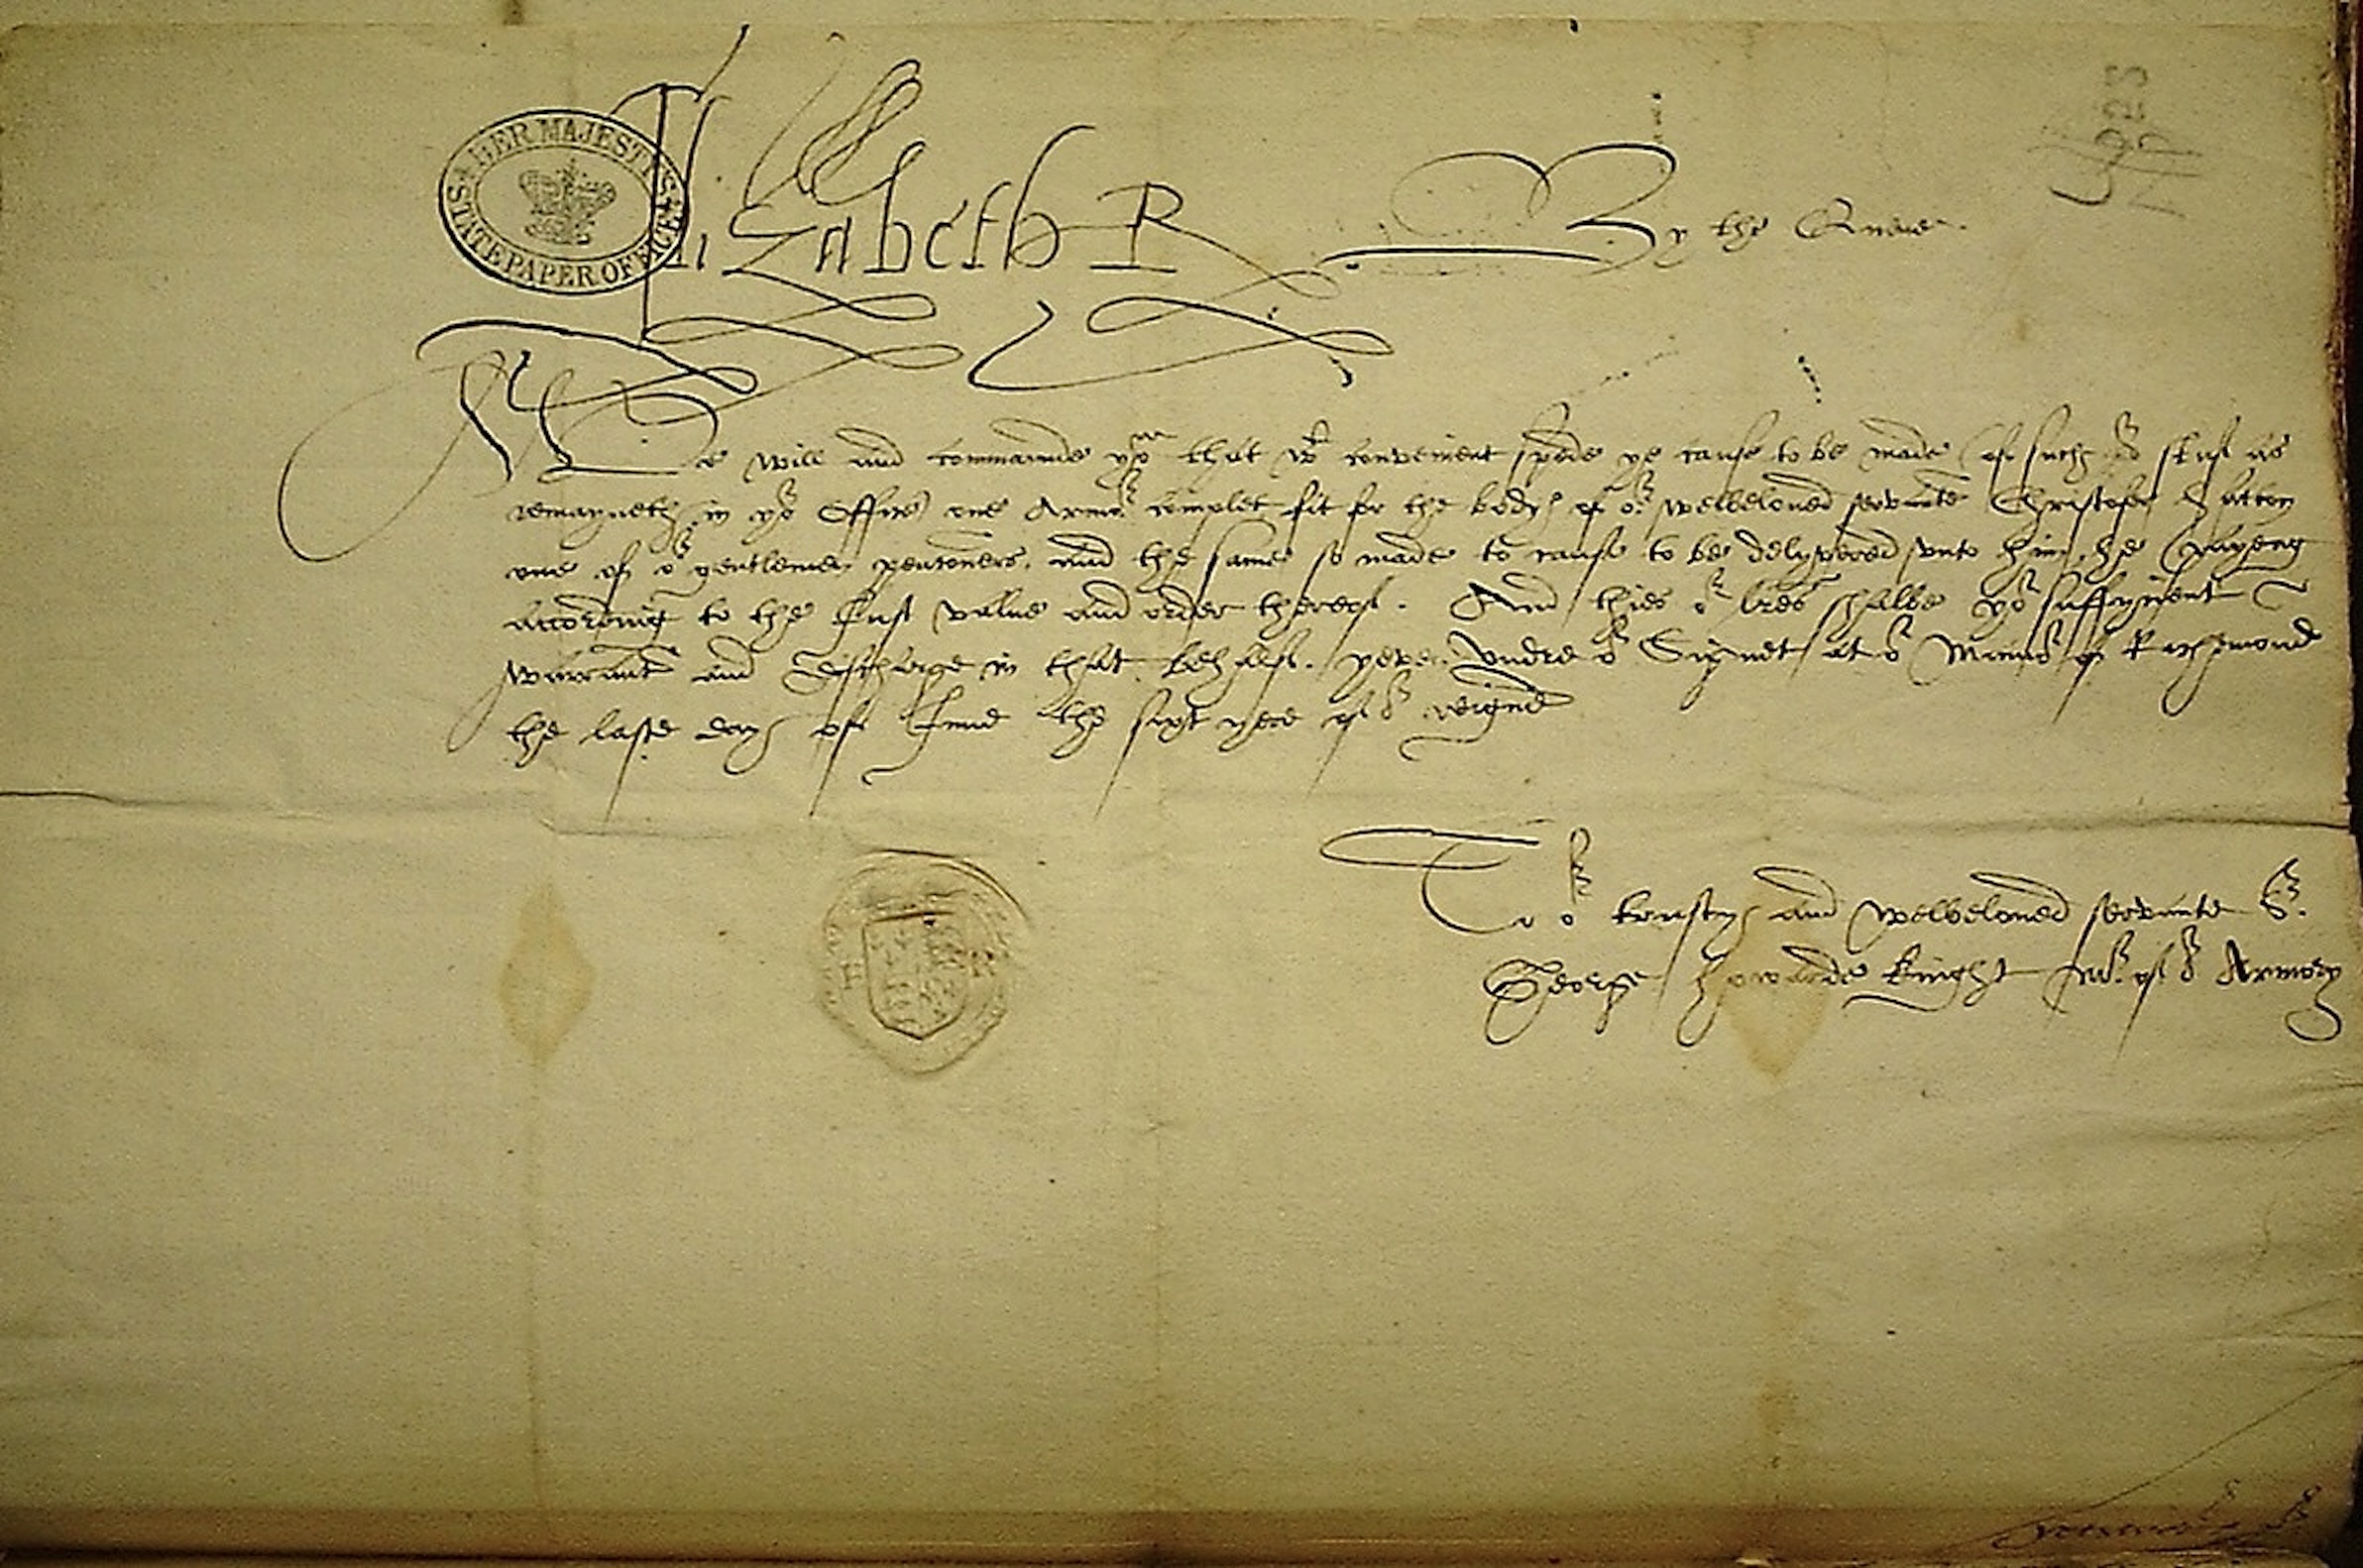 HER MAJESTY'S STATE PAPER OFFICE
Elizabeth R
By the Quene.
We will and commaunde yow that wt convenient spede ye cause to be made of such or stuf as
remayneth in yor Office one Armor complet fit for the body of or welbeloved servante Christofer Hatton
one of or gentlemen pentioners, and the same so made to cause to be delyvered unto him, he payeng
according to the Just value and order thereof. And thies or lres shalbe yor suffycyent
warrant and discharge in that behalf. yeven Undre or Signet at or Manor of Rychemond
the laste day of June the sixt yere of or reigne
To or trusty and welbeloved servante Sr.
George howarde knight Mr. of or Armory
E R